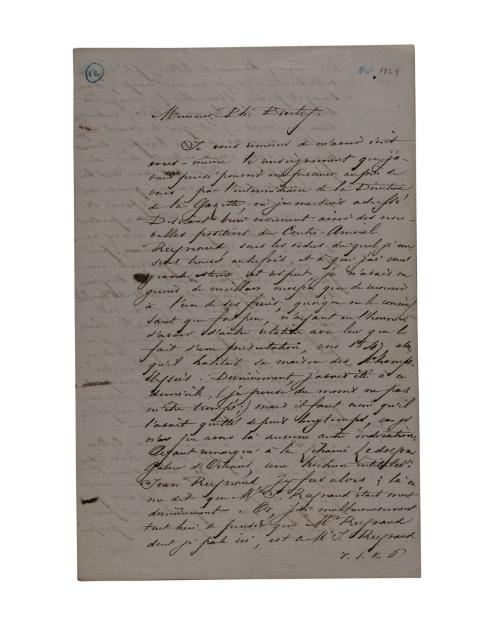 12
1864
Monsieur Ph.
Je vous remercie de m'avoir écrit
vous-même le renseignement que j'a-
vais pensé pouvoir me procurer auprès de
vous, par l'intermédiaire de la Direction
de la Gazette, où je me suis adressé!
Désirant bien vivement avoir des nou-
velles positives du Contre-Amiral
Reynaud, sous les ordres duquel je me
suis trouvé autrefois, et à qui j'ai voué
grande estime et respect, je n'avais
guères de meilleur moyen que de recourir
à l'un de ses frères, quoique ne le connais-
sant que fort peu, n'ayant eu l'honneur
d'avoir d'autre relation avec lui que le
fait d'une présentation, vers 1847, alors
qu'il habitait sa maison des Champs
Elysées. Dernièrement, j'avais été à ce
domicile, (je pense du moins ne pas
m'être trompé!) mais il faut croire qu'il
l'avait quitté depuis longtemps, car je
n'ai pu avoir là aucune autre indication.
Ayant remarqué à la
Galerie d'Orléans, une brochure intitulée:
Jean Reynaud, j'y fus alors: là on
me dit que Mr Reynaud était mort
dernièrement. Or, j'ai malheureusement
tout lieu de penser que Mr Reynaud
dont je parle ici, est Mr J. Reynaud